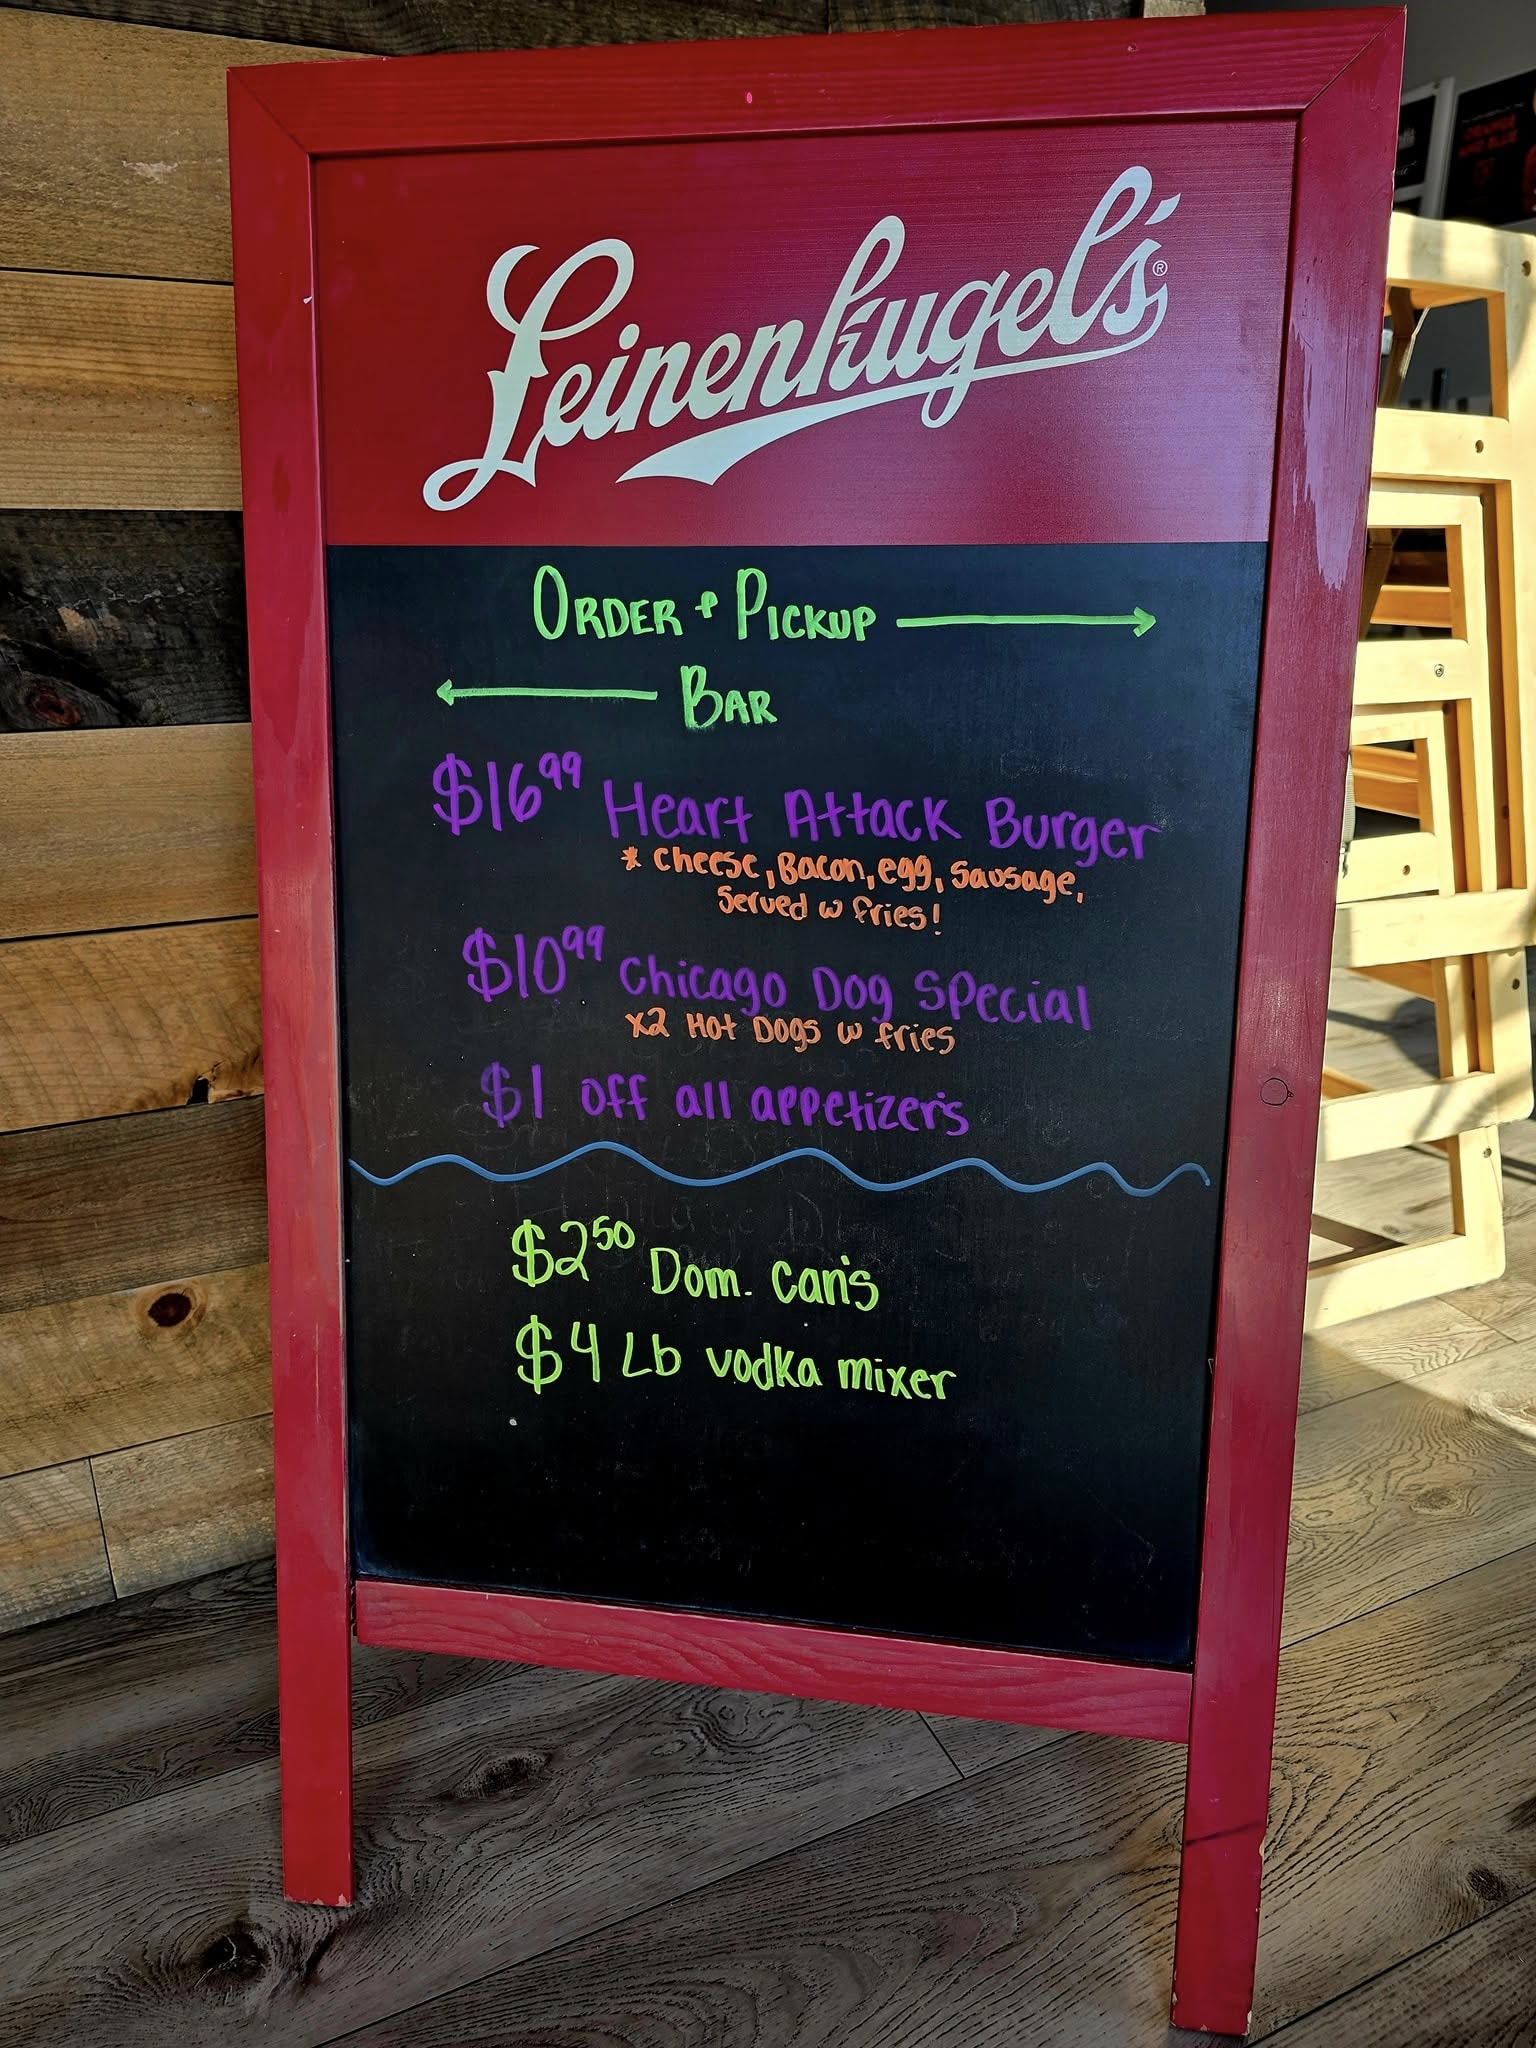 Leinenkugel's®
ORDER + PICKUP
BAR
$16⁹⁹ Heart Attack Burger
* cheese, Bacon, egg, Sausage,
Served w fries!
$10⁹⁹ Chicago Dog Special
x2 Hot Dogs w fries
$1 off all appetizer's
$2⁵⁰ Dom. Can's
$4 Lb vodka mixer
ORANGE
AND BLUE